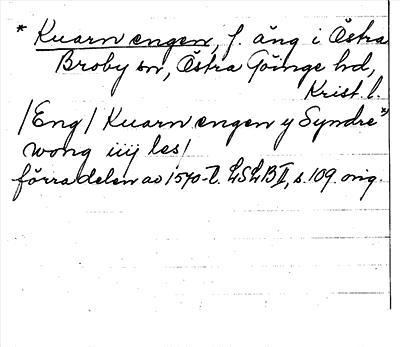 * Kuarn engen, f. äng i Östra
Broby sn, Östra Göinge hd,
Krist. l.
/Eng/ Kuarn engen y Syndre
wong iiij les/
förra delen av 1540-t. LSLB II, s. 109. orig.